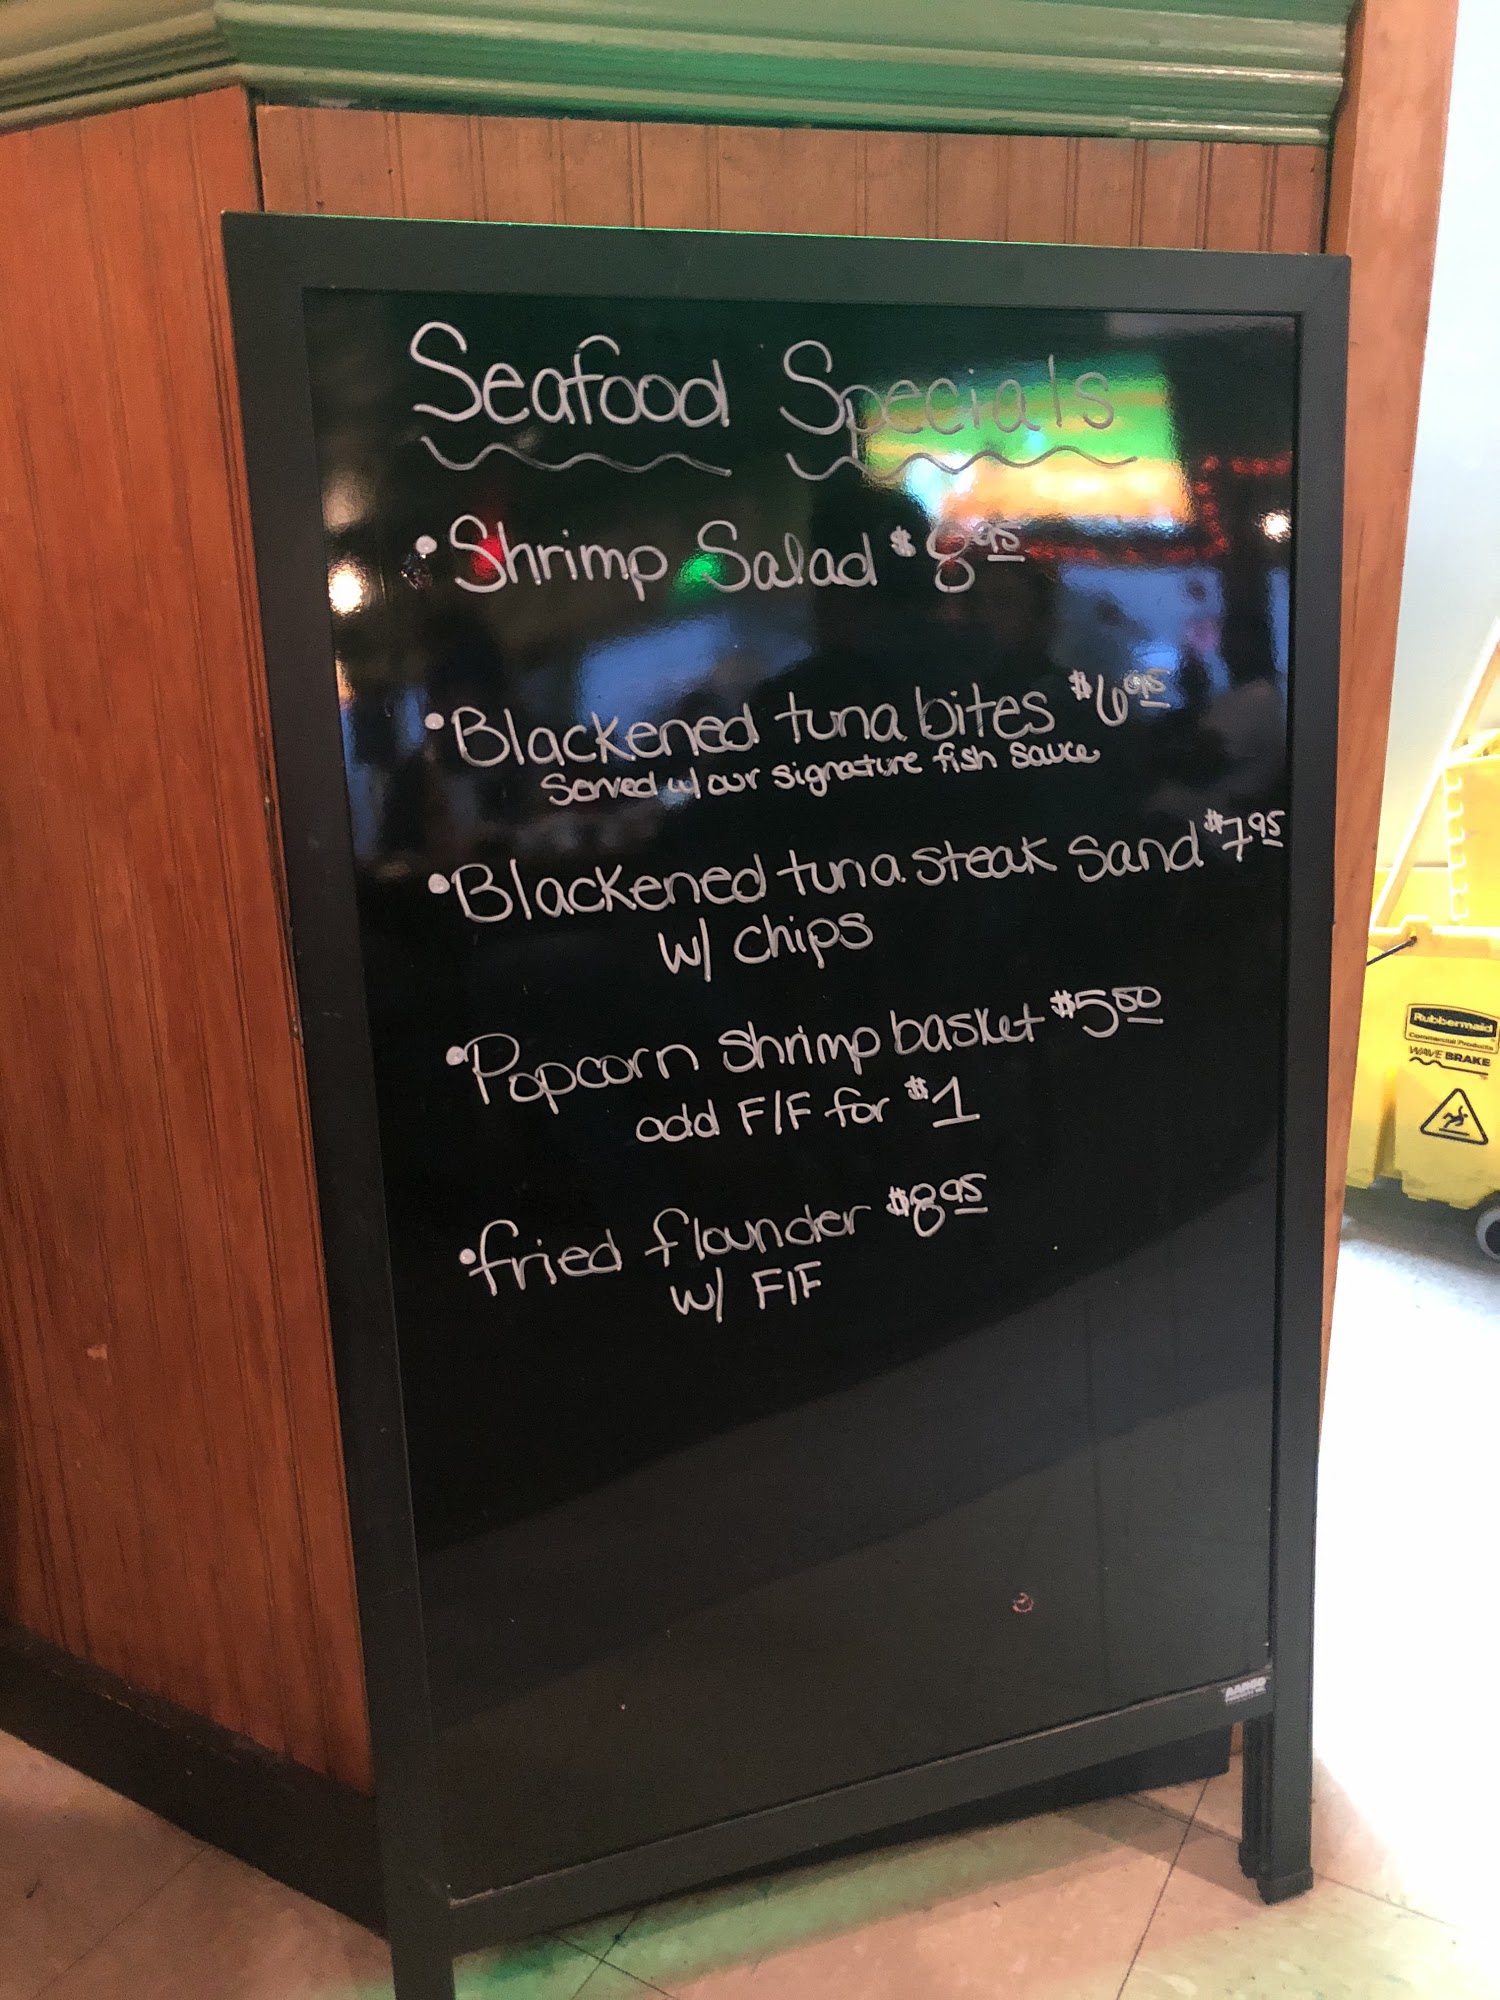 Seafood Specials
• Shrimp Salad $8.95
• Blackened tuna bites $6.95
Served w/ our signature fish sauce
• Blackened tuna steak sand $7.95
w/ chips
• Popcorn shrimp basket $5.50
add F/F for $1
• fried flounder $8.95
w/ F/F
Rubbermaid
Commercial Products
WAVE BRAKE